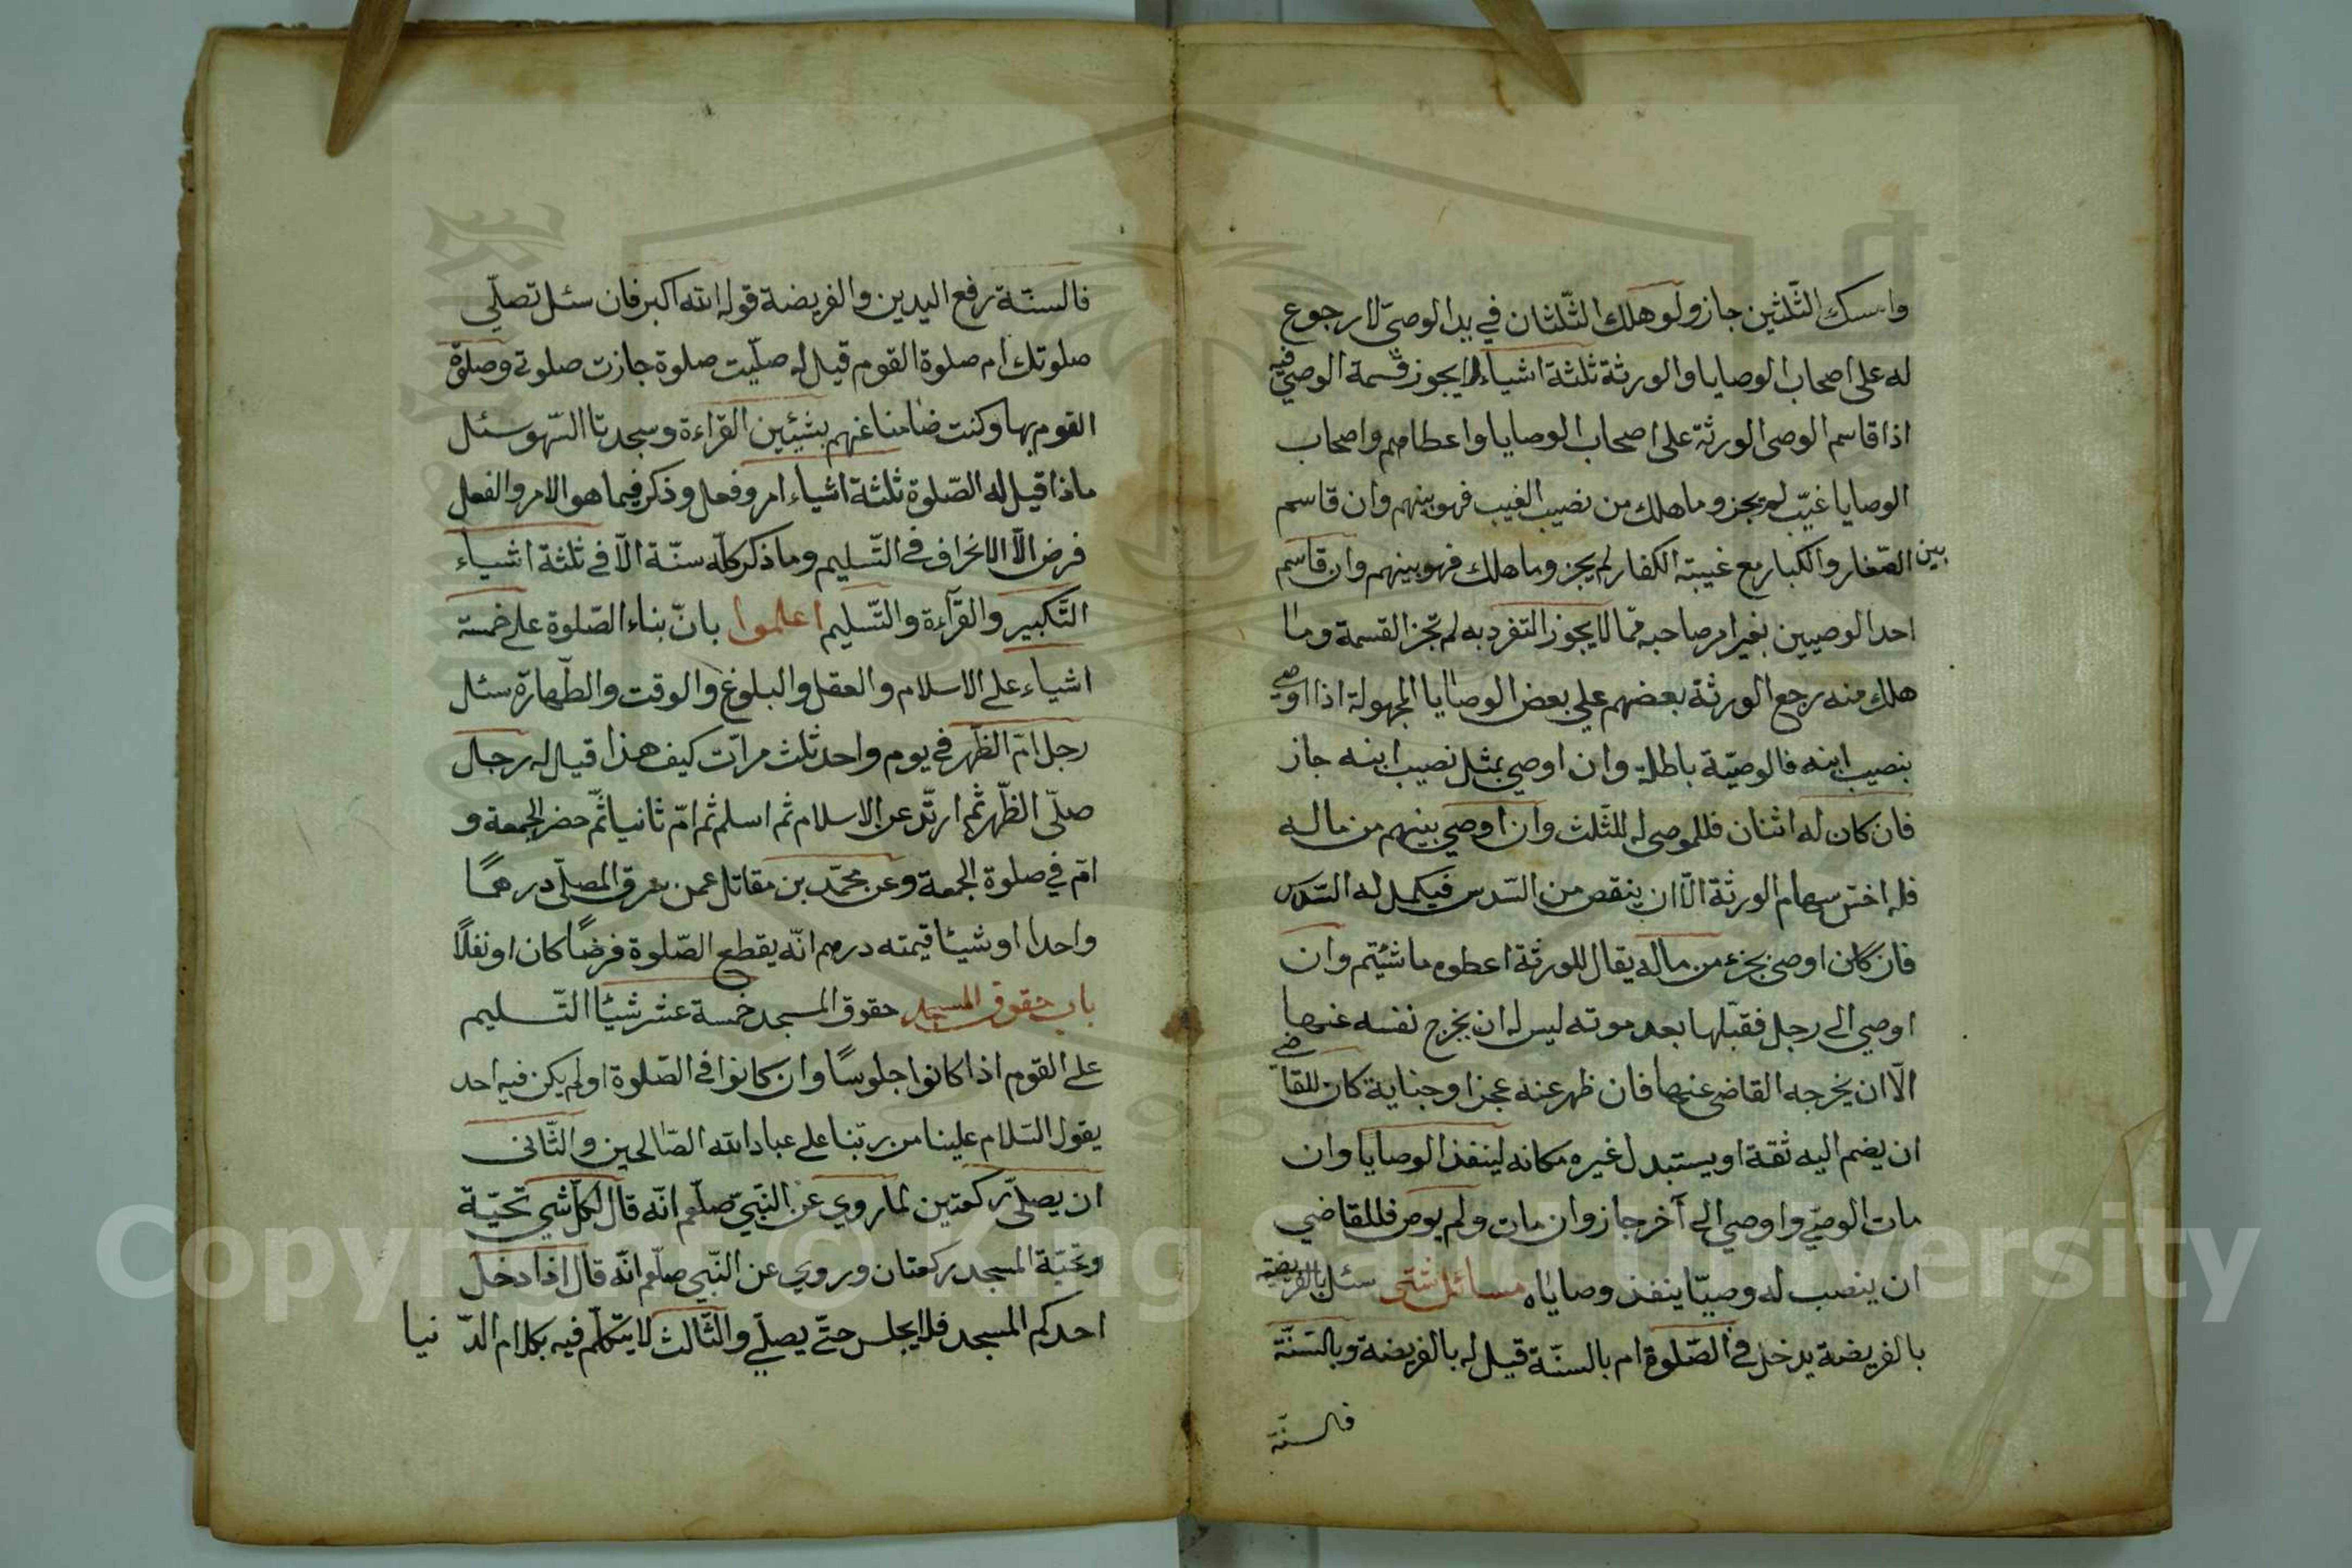 وامسك الثّلثين جاز ولو هلك الثّلثان في يد الوصيّ لا رجوع
له على اصحاب الوصايا والورثة ثلثة اشياء لا يجوز قسمة الوصيّ فيه
اذا قاسم الوصى الورثة على اصحاب الوصايا واعطاهم واصحاب
الوصايا غيّب لم يجز وما هلك من نصيب الغيب فهو بينهم وان قاسم
بين الصّغار والكبار مع غيبة الكفار لم يجز وما هلك فهو بينهم وان قاسم
احد الوصيين بغير امر صاحبه ممّا لا يجوز التفرد به لم تجز القسمة وما
هلك منه رجع الورثة بعضهم على بعض الوصايا المجهولة اذا اوصى
بنصيب ابنه فالوصيّة باطلة وان اوصى بمثل نصيب ابنه جاز
فان كان له اثنان فللموصى له للثّلث وان اوصي بينهم من ماله
فله اخسّ سهام الورثة الّا ان ينقص من السّدس فيكمل له السّدس
فان كان اوصى بجزء من ماله يقال للورثة اعطوه ما شئتم وان
اوصي الى رجل فقبّلها بعد موته ليس له ان يخرج نفسه عنها
الّا ان يخرجه القاضى عنها فان ظهر عنه عجز او جناية كان للقاضى
ان يضم اليه ثقة او يستبدل غيره مكانه لينفذ الوصايا وان
مات الوصيّ واوصي الى آخر جاز وان مات ولم يوص فللقاضي
ان ينصب له وصيّا ينفذ وصاياه مسائل شتى سئل بالفريضة
بالفريضة يدخل في الصّلوة ام بالسنّة قيل له بالفريضة وبالسّنّة
فالسنّة
فالسنّة رفع اليدين والفريضة قوله الله اكبر فان سئل تصلّي
صلوتك ام صلوة القوم قيل له صلّيت صلوة جازت صلوتى وصلوة
القوم بها وكنت ضامنا عنهم بشيئين القراءة وسجدتا السّهو سئل
ماذا قيل له الصّلوة ثلثة اشياء امر وفعل وذكر فيما هو الامر والفعل
فرض الّا الانحراف في التّسليم وما ذكر كلّه سنّة الّا في ثلثة اشياء
التّكبير والقرآءة والتّسليم اعلموا بانّ بناء الصّلوة على خمسة
اشياء على الاسلام والعقل والبلوغ والوقت والطّهارة سئل
رجل امّ الظّهر في يوم واحد ثلث مرّات كيف هذا قيل له رجال
صلّى الظّهر ثم ارتّد عن الاسلام ثم اسلم ثم امّ ثانيا ثمّ حضر الجمعة و
امّ في صلوة الجمعة وعن محمّد بن مقاتل عمن سرق المصلّى درهمًا
واحدا او شيئا قيمته درهم انّه يقطع الصّلوة فرضًا كان او نفلًا
باب حقوق المسجد حقوق المسجد خمسة عشر شيئًا التّسليم
على القوم اذا كانوا جلوسًا وان كانوا في الصّلوة او لم يكن فيه احد
يقول السّلام علينا من ربّنا على عباد الله الصّالحين والثّانى
ان يصلّى ركعتين لما روي عن النّبيّ صلّعم انّه قال لكلّ شي تحيّة
وتحيّة المسجد ركعتان وروي عن النّبي صلّعم انّه قال اذا دخل
احدكم المسجد فلا يجلس حتّى يصلّي والثّالث لا يتكلّم فيه بكلام الدّنيا
Copyright © King Saud University